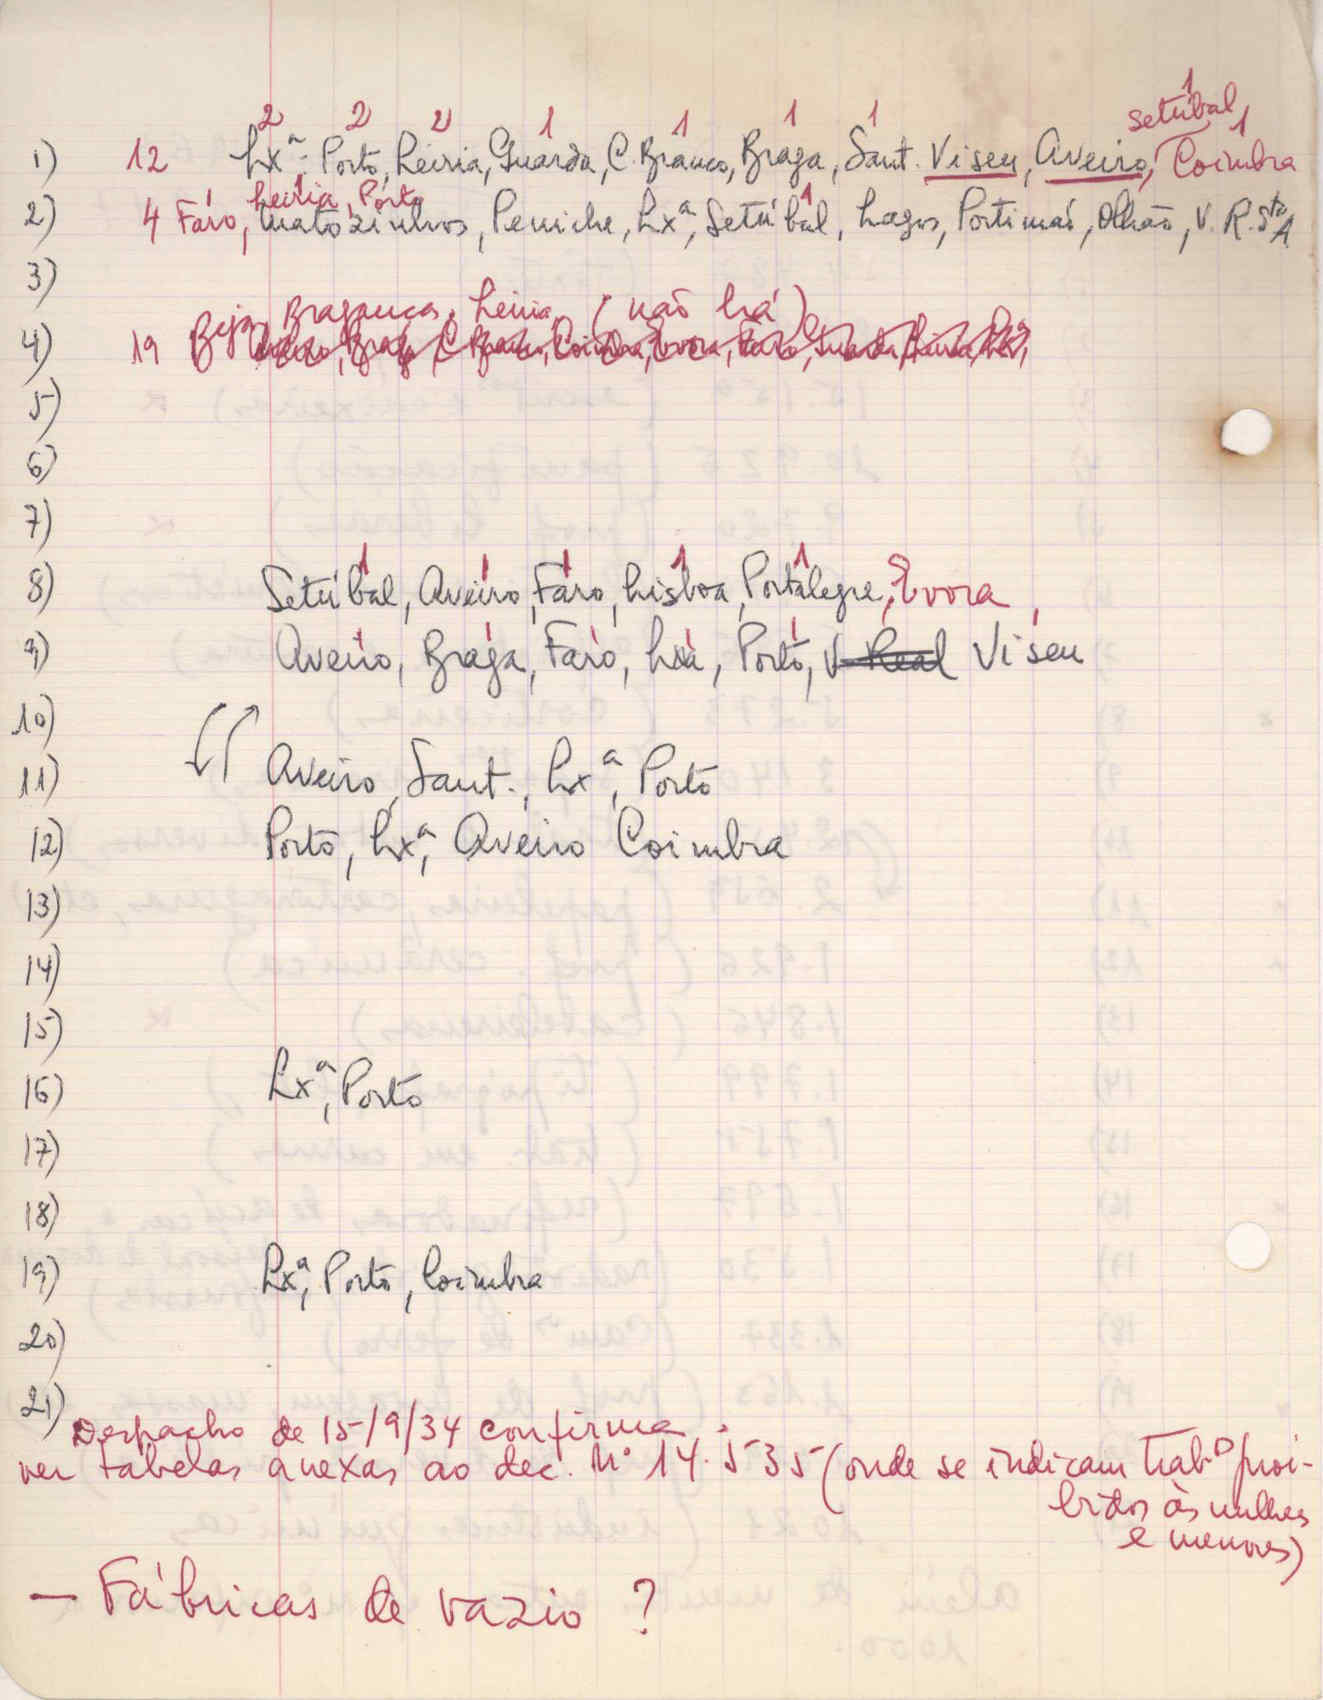 2 2 2 1 1 1 1 1 1
setúbal,
1) 12 Lxª, Porto, Leiria, Guarda, C. Branco, Braga, Sant. Viseu, Aveiro, Coimbra
Leiria, Porto
2) 4 Faro, Matozinhos, Peniche, Lxª, Setúbal, Lagos, Portimaõ, Olhão, V. R. StºA
1
3)
Beja, Bragança, Leiria (não há)
4) 19 Aveiro, Braga, C. Branco, Coimbra, Evora, Faro, Guarda, Leiria, Lxª,
5)
6)
7)
1 1 1 1 1
8) Setúbal, Aveiro, Faro, Lisboa, Portalegre, Evora,
9) Aveiro, Braga, Faro, Lxa, Porto, V. Real Viseu
10)
11) Aveiro, Sant., Lxª, Porto
12) Porto, Lxª, Aveiro Coimbra
13)
14)
15)
16) Lxª, Porto
17)
18)
19) Lxª, Porto, Coimbra
20)
21)
Despacho de 15/9/34 confirma.
ver tabelas anexas ao dec. Nº 14.535 (onde se indicam trab.º proi-
bidos às mulhes
e menores)
— Fábricas de vazio ?